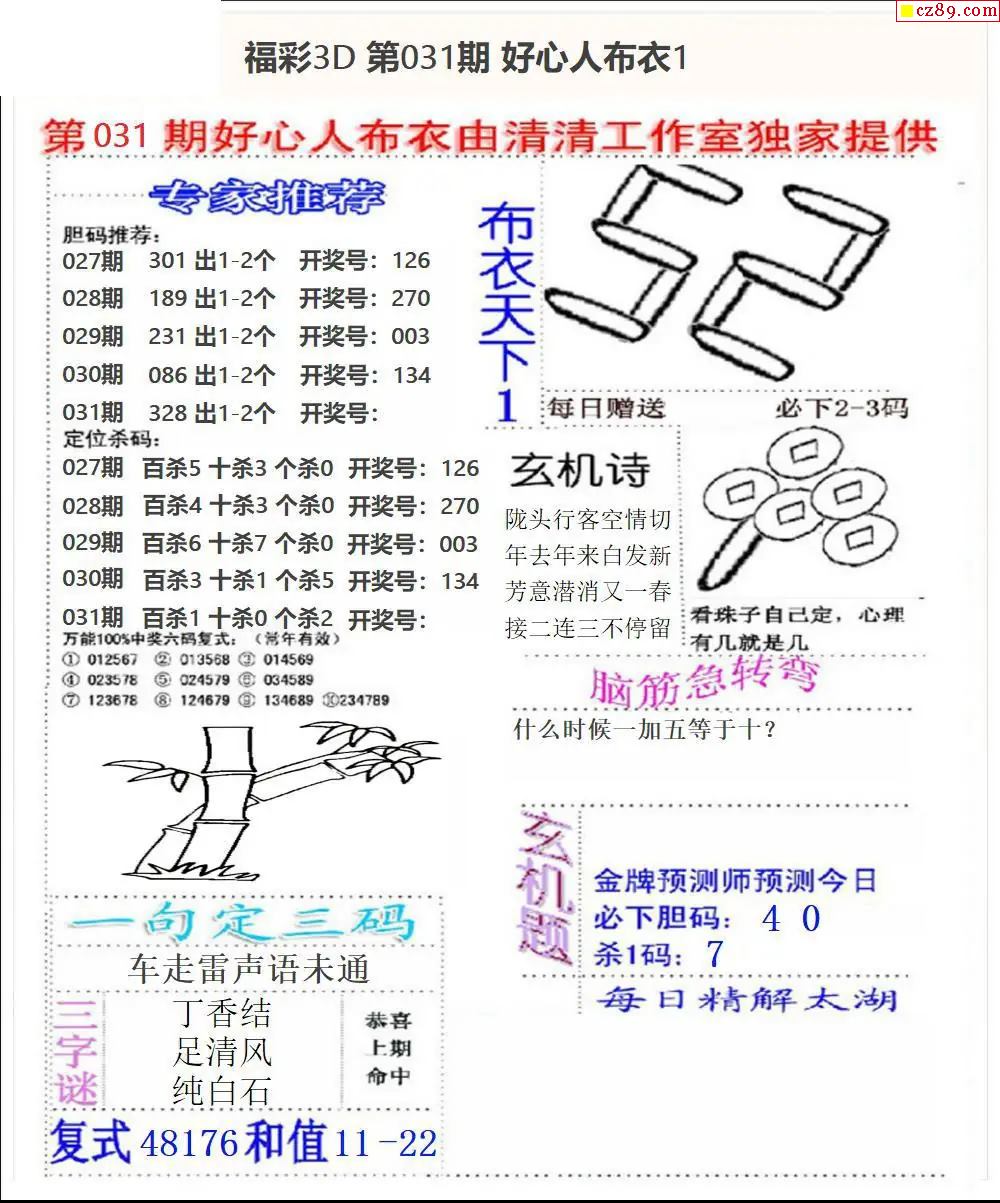 cz89.com
福彩3D 第031期 好心人布衣1
第 031 期好心人布衣由清清工作室独家提供
专家推荐
胆码推荐：
027期 301 出1-2个 开奖号：126
028期 189 出1-2个 开奖号：270
029期 231 出1-2个 开奖号：003
030期 086 出1-2个 开奖号：134
031期 328 出1-2个 开奖号：
定位杀码：
027期 百杀5 十杀3 个杀0 开奖号：126
028期 百杀4 十杀3 个杀0 开奖号：270
029期 百杀6 十杀7 个杀0 开奖号：003
030期 百杀3 十杀1 个杀5 开奖号：134
031期 百杀1 十杀0 个杀2 开奖号：
万能100%中奖六码复式：（常年有效）
① 012567 ② 013568 ③ 014569
④ 023578 ⑤ 024579 ⑥ 034589
⑦ 123678 ⑧ 124679 ⑨ 134689 ⑩234789
一句定三码
车走雷声语未通
三字谜
丁香结
足清风
纯白石
恭喜
上期
命中
复式 48176 和值 11-22
布衣天下1
52
每日赠送 必下2-3码
玄机诗
陇头行客空情切
年去年来白发新
芳意潜消又一春
接二连三不停留
看珠子自己定，心理
有几就是几
脑筋急转弯
什么时候一加五等于十？
玄机题
金牌预测师预测今日
必下胆码： 4 0
杀1码： 7
每日精解太湖